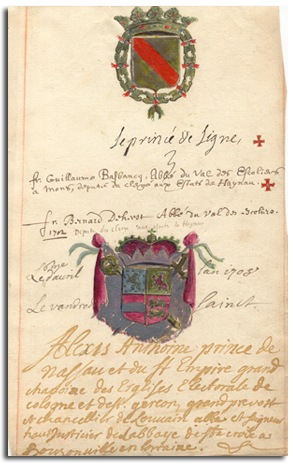 Le prince de Ligne,
fr Guillaume Abbé du Val des Escoliers
a Mons, député du clergé aux Estats de Haynau.
fr Bernard Abbé du Val des
1702 Deputé du clergé aux estats de Haynau
Le avril lan 1708
Le vendredi Sainct.
Alexis Anthoine prince de
Nassau et du St Empire grand
chanoine des Esglises Electorale de
cologne et de St. gereon, grand prevost
et chancellier de Louvain abbé et seigneur
haut Justicier de Labbaye de Ste croix a
Bousonville en Lorraine.